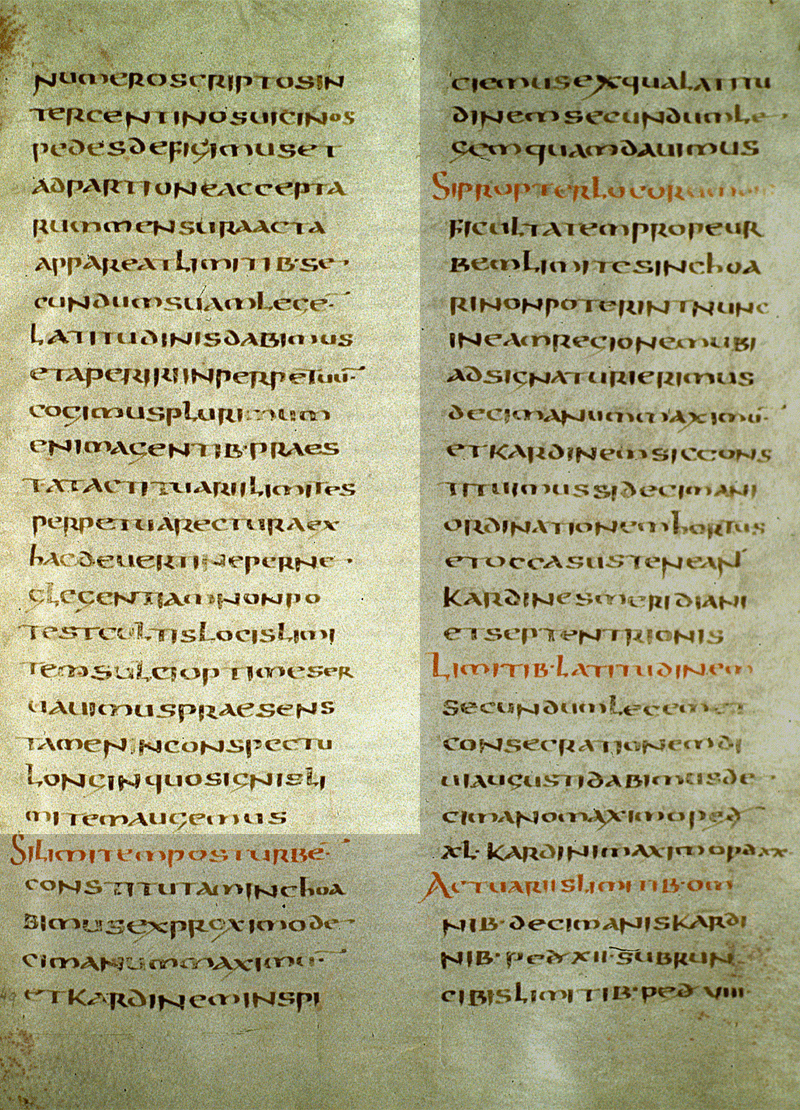 NUMEROSCRIPTOSIN
TERCENTINOSUICINOS
PEDESDEFIGIMUSET
ADPARTIONEACCEPTA
RUMMENSURAACTA
APPAREATLIMITIB·SE·
CUNDUMSUAMLEGE·
LATITUDINISDABIMUS
ETAPERIRIINPERPETUU·
COGIMUSPLURIMUM
ENIMAGENTIB·PRAES
TATACTITUARIILIMITES
PERPETUARECTURAEX
HACDEUERTINEPERNE·
GLEGENTIAMNONPO
TESTCULTISLOCISLIMI
TEMSULCIOPTIMESER
UAUIMUSPRAESENS
TAMENINCONSPECTU
LONGINQUOSIGNISLI
MITEMAUGEMUS
SILIMITEMPOSTURBE·
CONSTITUTAMINCHOA
BIMUSEXPROXIMODE·
CIMANUMMAXIMU·
ETKARDINEMINSPI
CIEMUSEXQUALATITU
DINEMSECUNDUMLE·
GEMQUAMDAUIMUS
SIPROPTERLOCORUM
FICULTATEMPROPEUR
BEMLIMITESINCHOA
RINONPOTERINTNUNC
INEAMREGIONEMUBI
ADSIGNATURIERIMUS
DECIMANUMMAXIMU·
ETKARDINEMSICCONS
TITUIMUSSIDECIMANI
ORDINATIONEMHORTUS
ETOCCASUSTENEANT
KARDINESMERIDIANI
ETSEPTENTRIONIS
LIMITIB·LATITUDINEM
SECUNDUMLEGEM
CONSECRATIONEMDI
UIAUGUSTIDABIMUSDE·
CIMANOMAXIMOPED
XL·KARDINIMAXIMOPDXX
ACTUARIISLIMITIB·OM
NIB·DECIMANISKARDI
NIB·PEDXII·SUBRUN
CIBISLIMITIB·PEDVIII